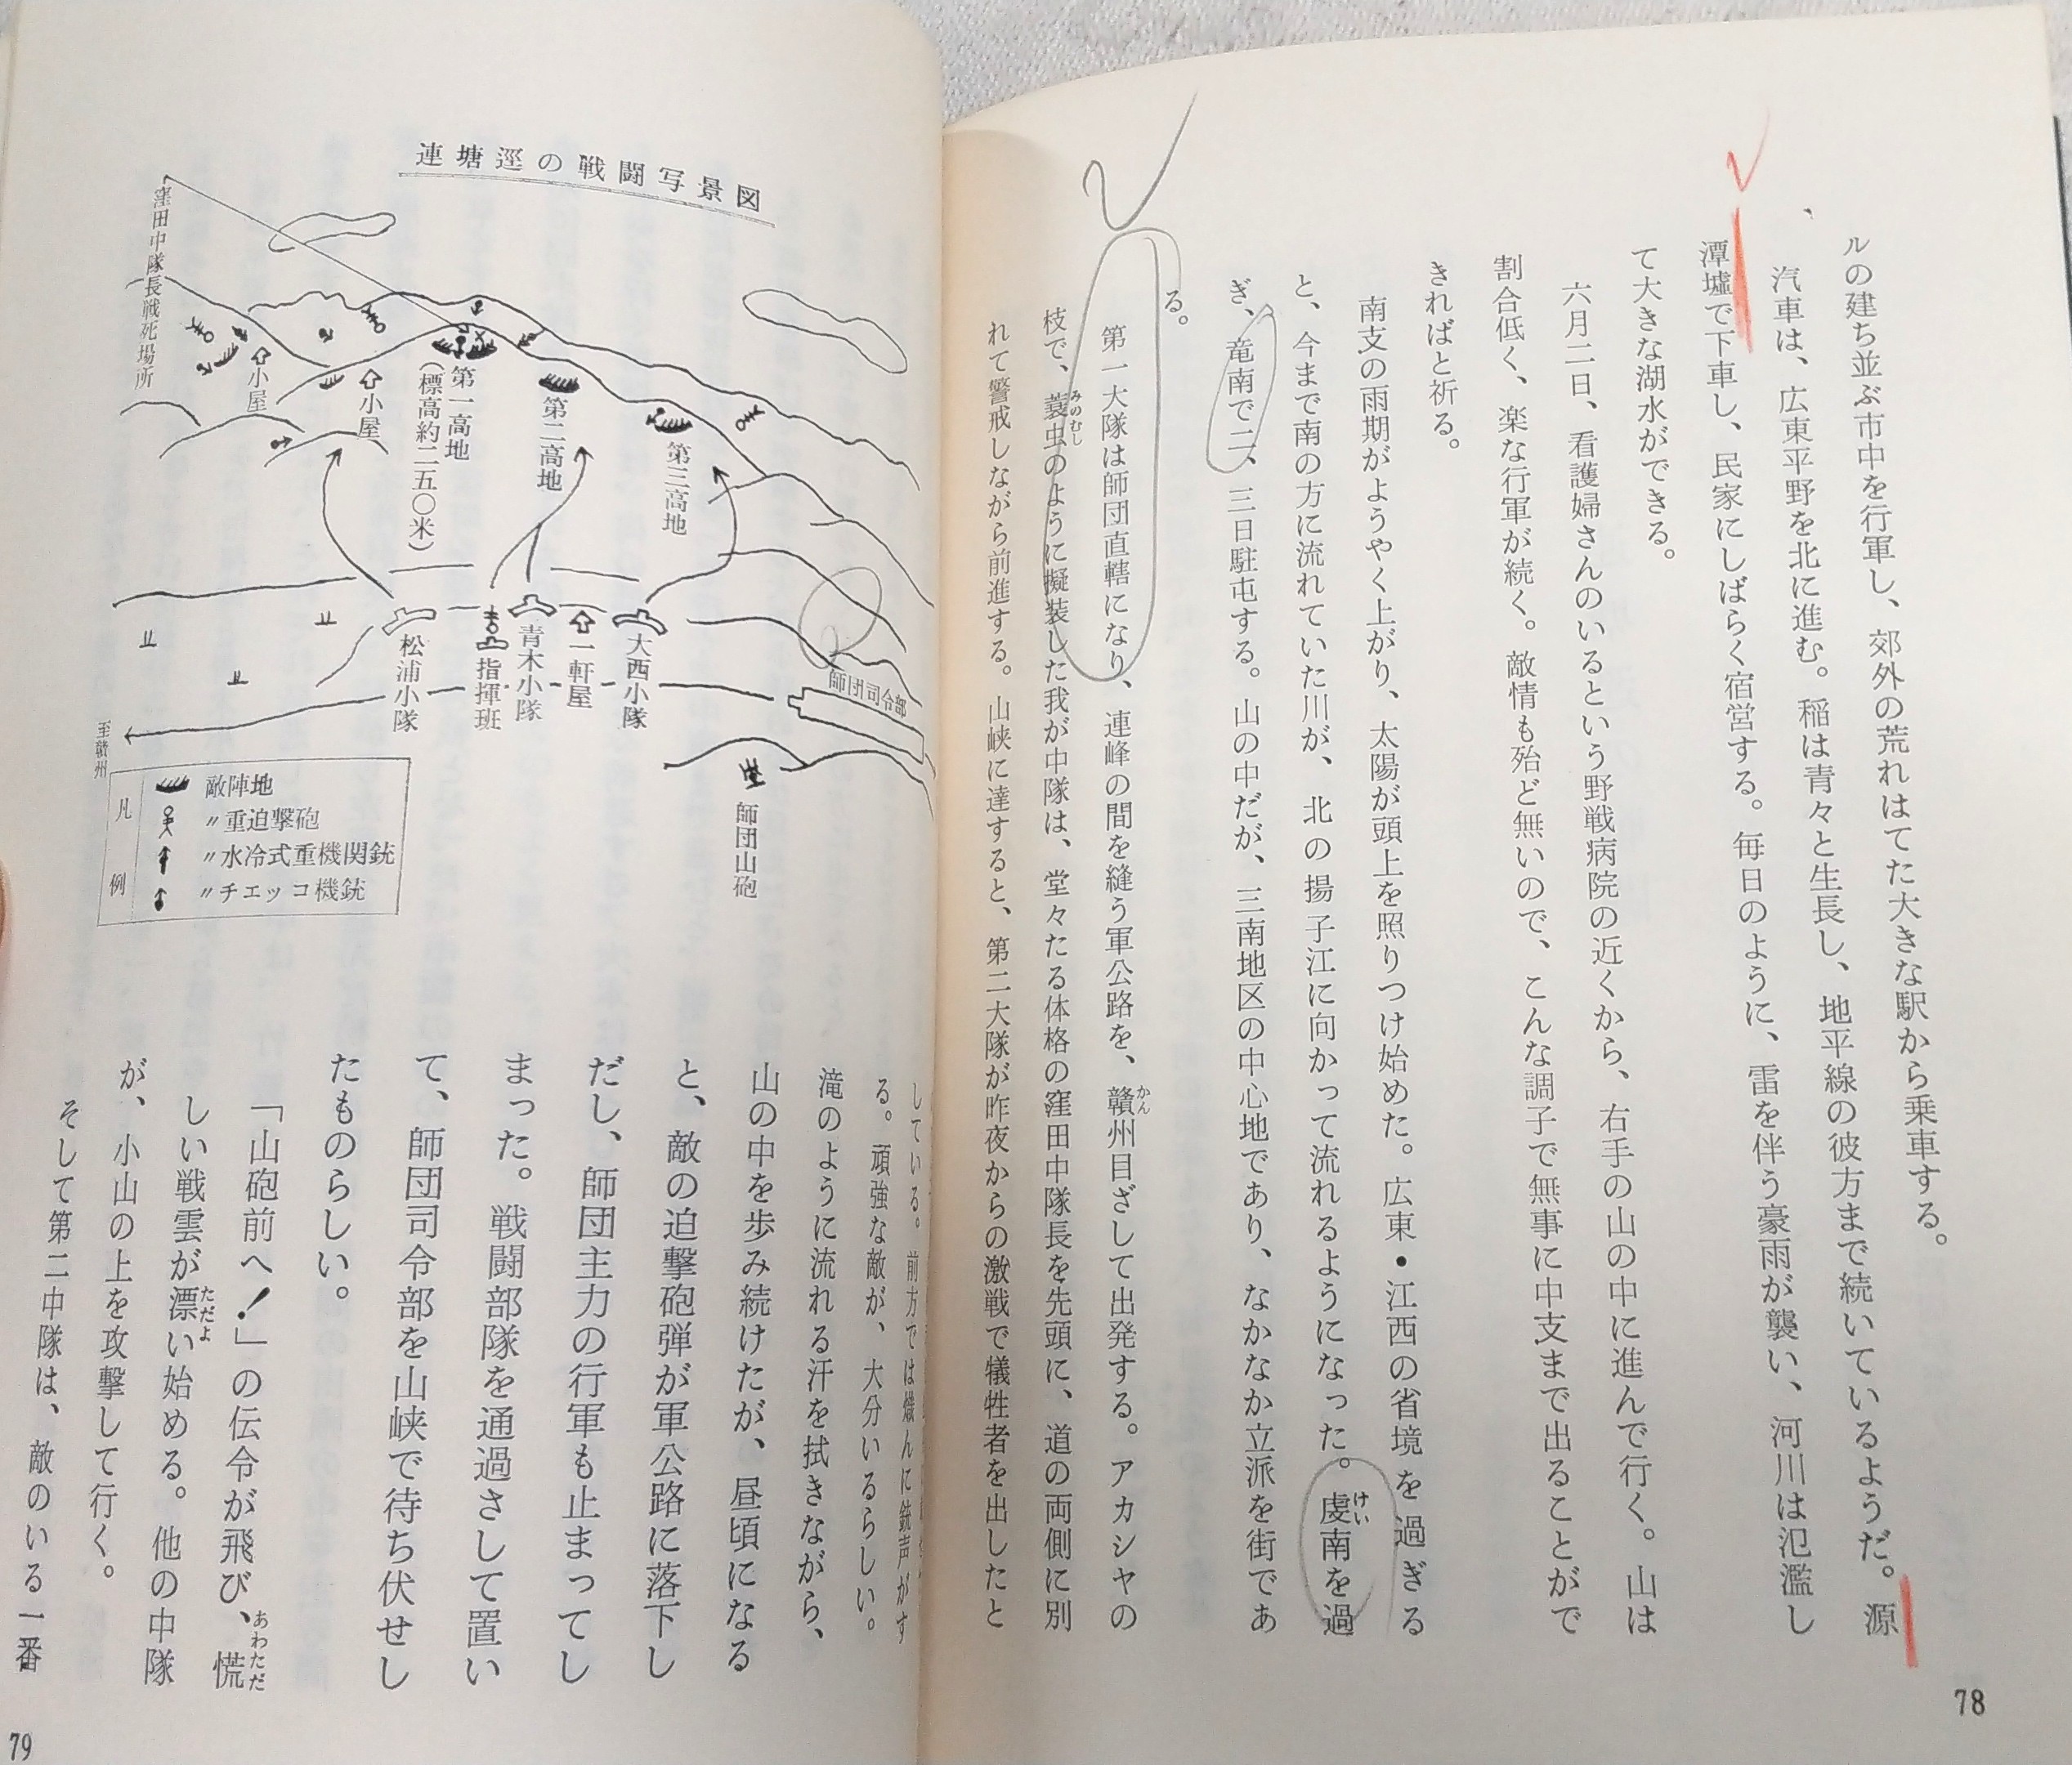 ルの建ち並ぶ市中を行軍し、郊外の荒れはてた大きな駅から乗車する。
汽車は、広東平野を北に進む。稲は青々と生長し、地平線の彼方まで続いているようだ。源
潭墟で下車し、民家にしばらく宿営する。毎日のように、雷を伴う豪雨が襲い、河川は氾濫し
て大きな湖水ができる。
六月二日、看護婦さんのいるという野戦病院の近くから、右手の山の中に進んで行く。山は
割合低く、楽な行軍が続く。敵情も殆ど無いので、こんな調子で無事に中支まで出ることがで
きればと祈る。
南支の雨期がようやく上がり、太陽が頭上を照りつけ始めた。広東・江西の省境を過ぎる
と、今まで南の方に流れていた川が、北の揚子江に向かって流れるようになった。虔南を過
けい
ぎ、竜南で二、三日駐屯する。山の中だが、三南地区の中心地であり、なかなか立派を街であ
る。
第一大隊は師団直轄になり、連峰の間を縫う軍公路を、贛州目ざして出発する。アカシヤの
かん
枝で、蓑虫のように擬装した我が中隊は、堂々たる体格の窪田中隊長を先頭に、道の両側に別
みのむし
れて警戒しながら前進する。山峡に達すると、第二大隊が昨夜からの激戦で犠牲者を出したと
78
連塘逕の戦闘写景図
窪田中隊長戦死場所
小屋
小屋
第一高地
(標高約二五〇米)
第二高地
第三高地
松浦小隊
指揮班
青木小隊
一軒屋
大西小隊
師団司令部
師団山砲
至贛州
凡例
敵陣地
〃重迫撃砲
〃水冷式重機関銃
〃チェッコ機銃
している。前方では熾んに銃声がす
る。頑強な敵が、大分いるらしい。
滝のように流れる汗を拭きながら、
山の中を歩み続けたが、昼頃になる
と、敵の迫撃砲弾が軍公路に落下し
だし、師団主力の行軍も止まってし
まった。戦闘部隊を通過さして置い
て、師団司令部を山峡で待ち伏せし
たものらしい。
「山砲前へ！」の伝令が飛び、慌
あわただ
しい戦雲が漂い始める。他の中隊
ただよ
が、小山の上を攻撃して行く。
そして第二中隊は、敵のいる一番
79